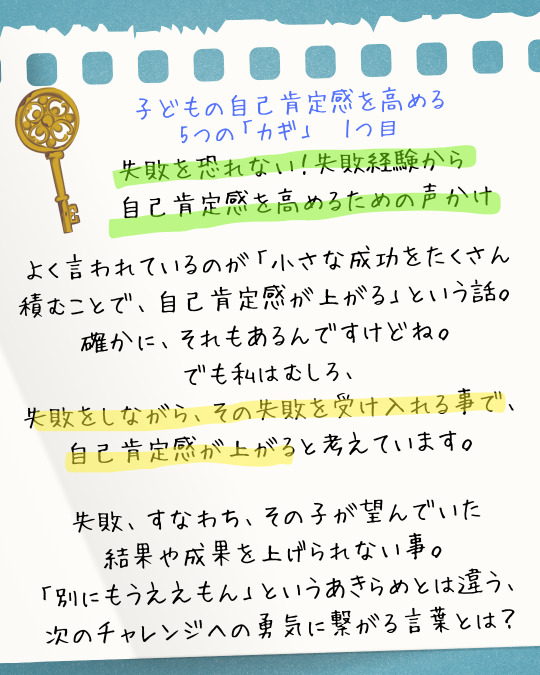 子どもの自己肯定感を高める
5つの「カギ」 1つ目
失敗を恐れない!失敗経験から
自己肯定感を高めるための声かけ
よく言われているのが「小さな成功をたくさん
積むことで、自己肯定感が上がる」という話。
確かに、それもあるんですけどね。
でも私はむしろ、
失敗をしながら、その失敗を受け入れる事で、
自己肯定感が上がると考えています。
失敗、すなわち、その子が望んでいた
結果や成果を上げられない事。
「別にもうええもん」というあきらめとは違う、
次のチャレンジへの勇気に繋がる言葉とは?